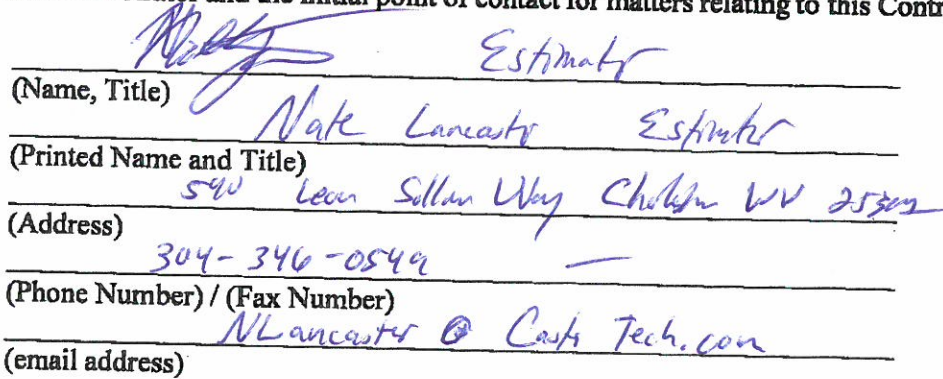 and the initial point of contact for matters relating to this Contr
Estimator
(Name, Title)
Nate Lancaster Estimator
(Printed Name and Title)
540 Leon Sullivan Way Charleston WV 25302
(Address)
304-346-0549 —
(Phone Number) / (Fax Number)
NLancaster @ Tech.com
(email address)